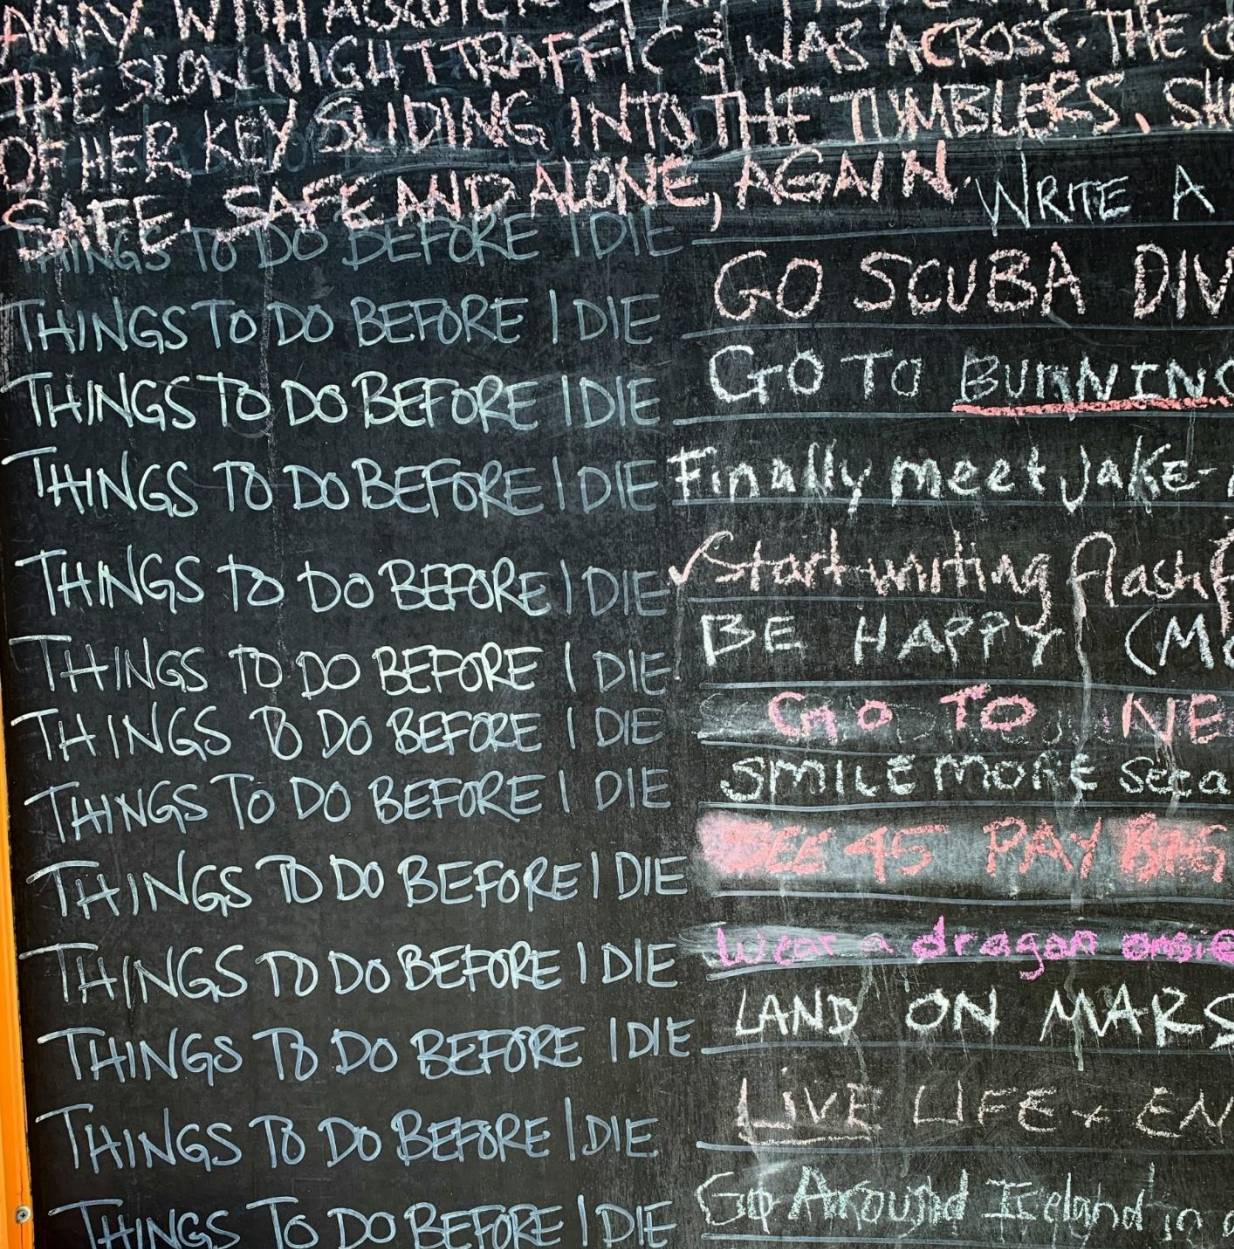 AWAY. WITH
THE SLOW NIGHT TRAFFIC & WAS ACROSS. THE
OF HER KEY SLIDING INTO THE TUMBLERS, SH
SAFE. SAFE AND ALONE, AGAIN.
THINGS TO DO BEFORE I DIE WRITE A
THINGS TO DO BEFORE I DIE GO SCUBA DIV
THINGS TO DO BEFORE I DIE GO TO BURNING
THINGS TO DO BEFORE I DIE Finally meet Jake-
THINGS TO DO BEFORE I DIE Start writing flash f
THINGS TO DO BEFORE I DIE BE HAPPY (MO
THINGS TO DO BEFORE I DIE GO TO NE
THINGS TO DO BEFORE I DIE SMILE MORE
THINGS TO DO BEFORE I DIE SEE 45 PAY
THINGS TO DO BEFORE I DIE Wear a dragon onsie
THINGS TO DO BEFORE I DIE LAND ON MARS
THINGS TO DO BEFORE I DIE LIVE LIFE + EN
THINGS TO DO BEFORE I DIE Go Around Iceland in a